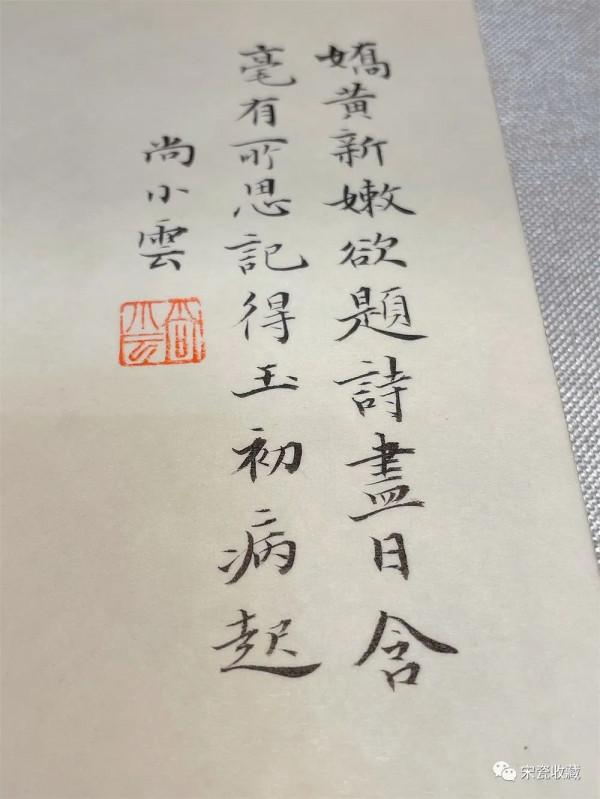 嬌黃新嫩欲題詩盡日含
毫有所思記得玉初病起
尚小雲
尚小云
宋瓷收藏